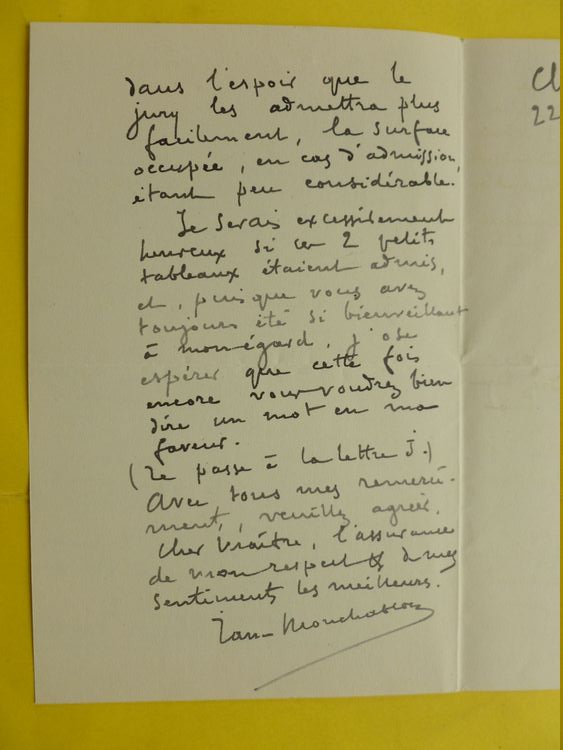 dans l'espoir que le
jury les admettra plus
facilement, la surface
occupée, en cas d'admission,
étant peu considérable.
Je serais excessivement
heureux si ces 2 petits
tableaux étaient admis,
et, puisque vous avez
toujours été si bienveillant
à mon égard, j'ose
espérer que cette fois
encore vous voudrez bien
dire un mot en ma
faveur.
(Je passe à la lettre J.)
Avec tous mes remercie-
ments, veuillez agréer,
Cher Maître, l'assurance
de mon respect & de mes
sentiments les meilleurs.
Jan-Monchablon
Cl
22